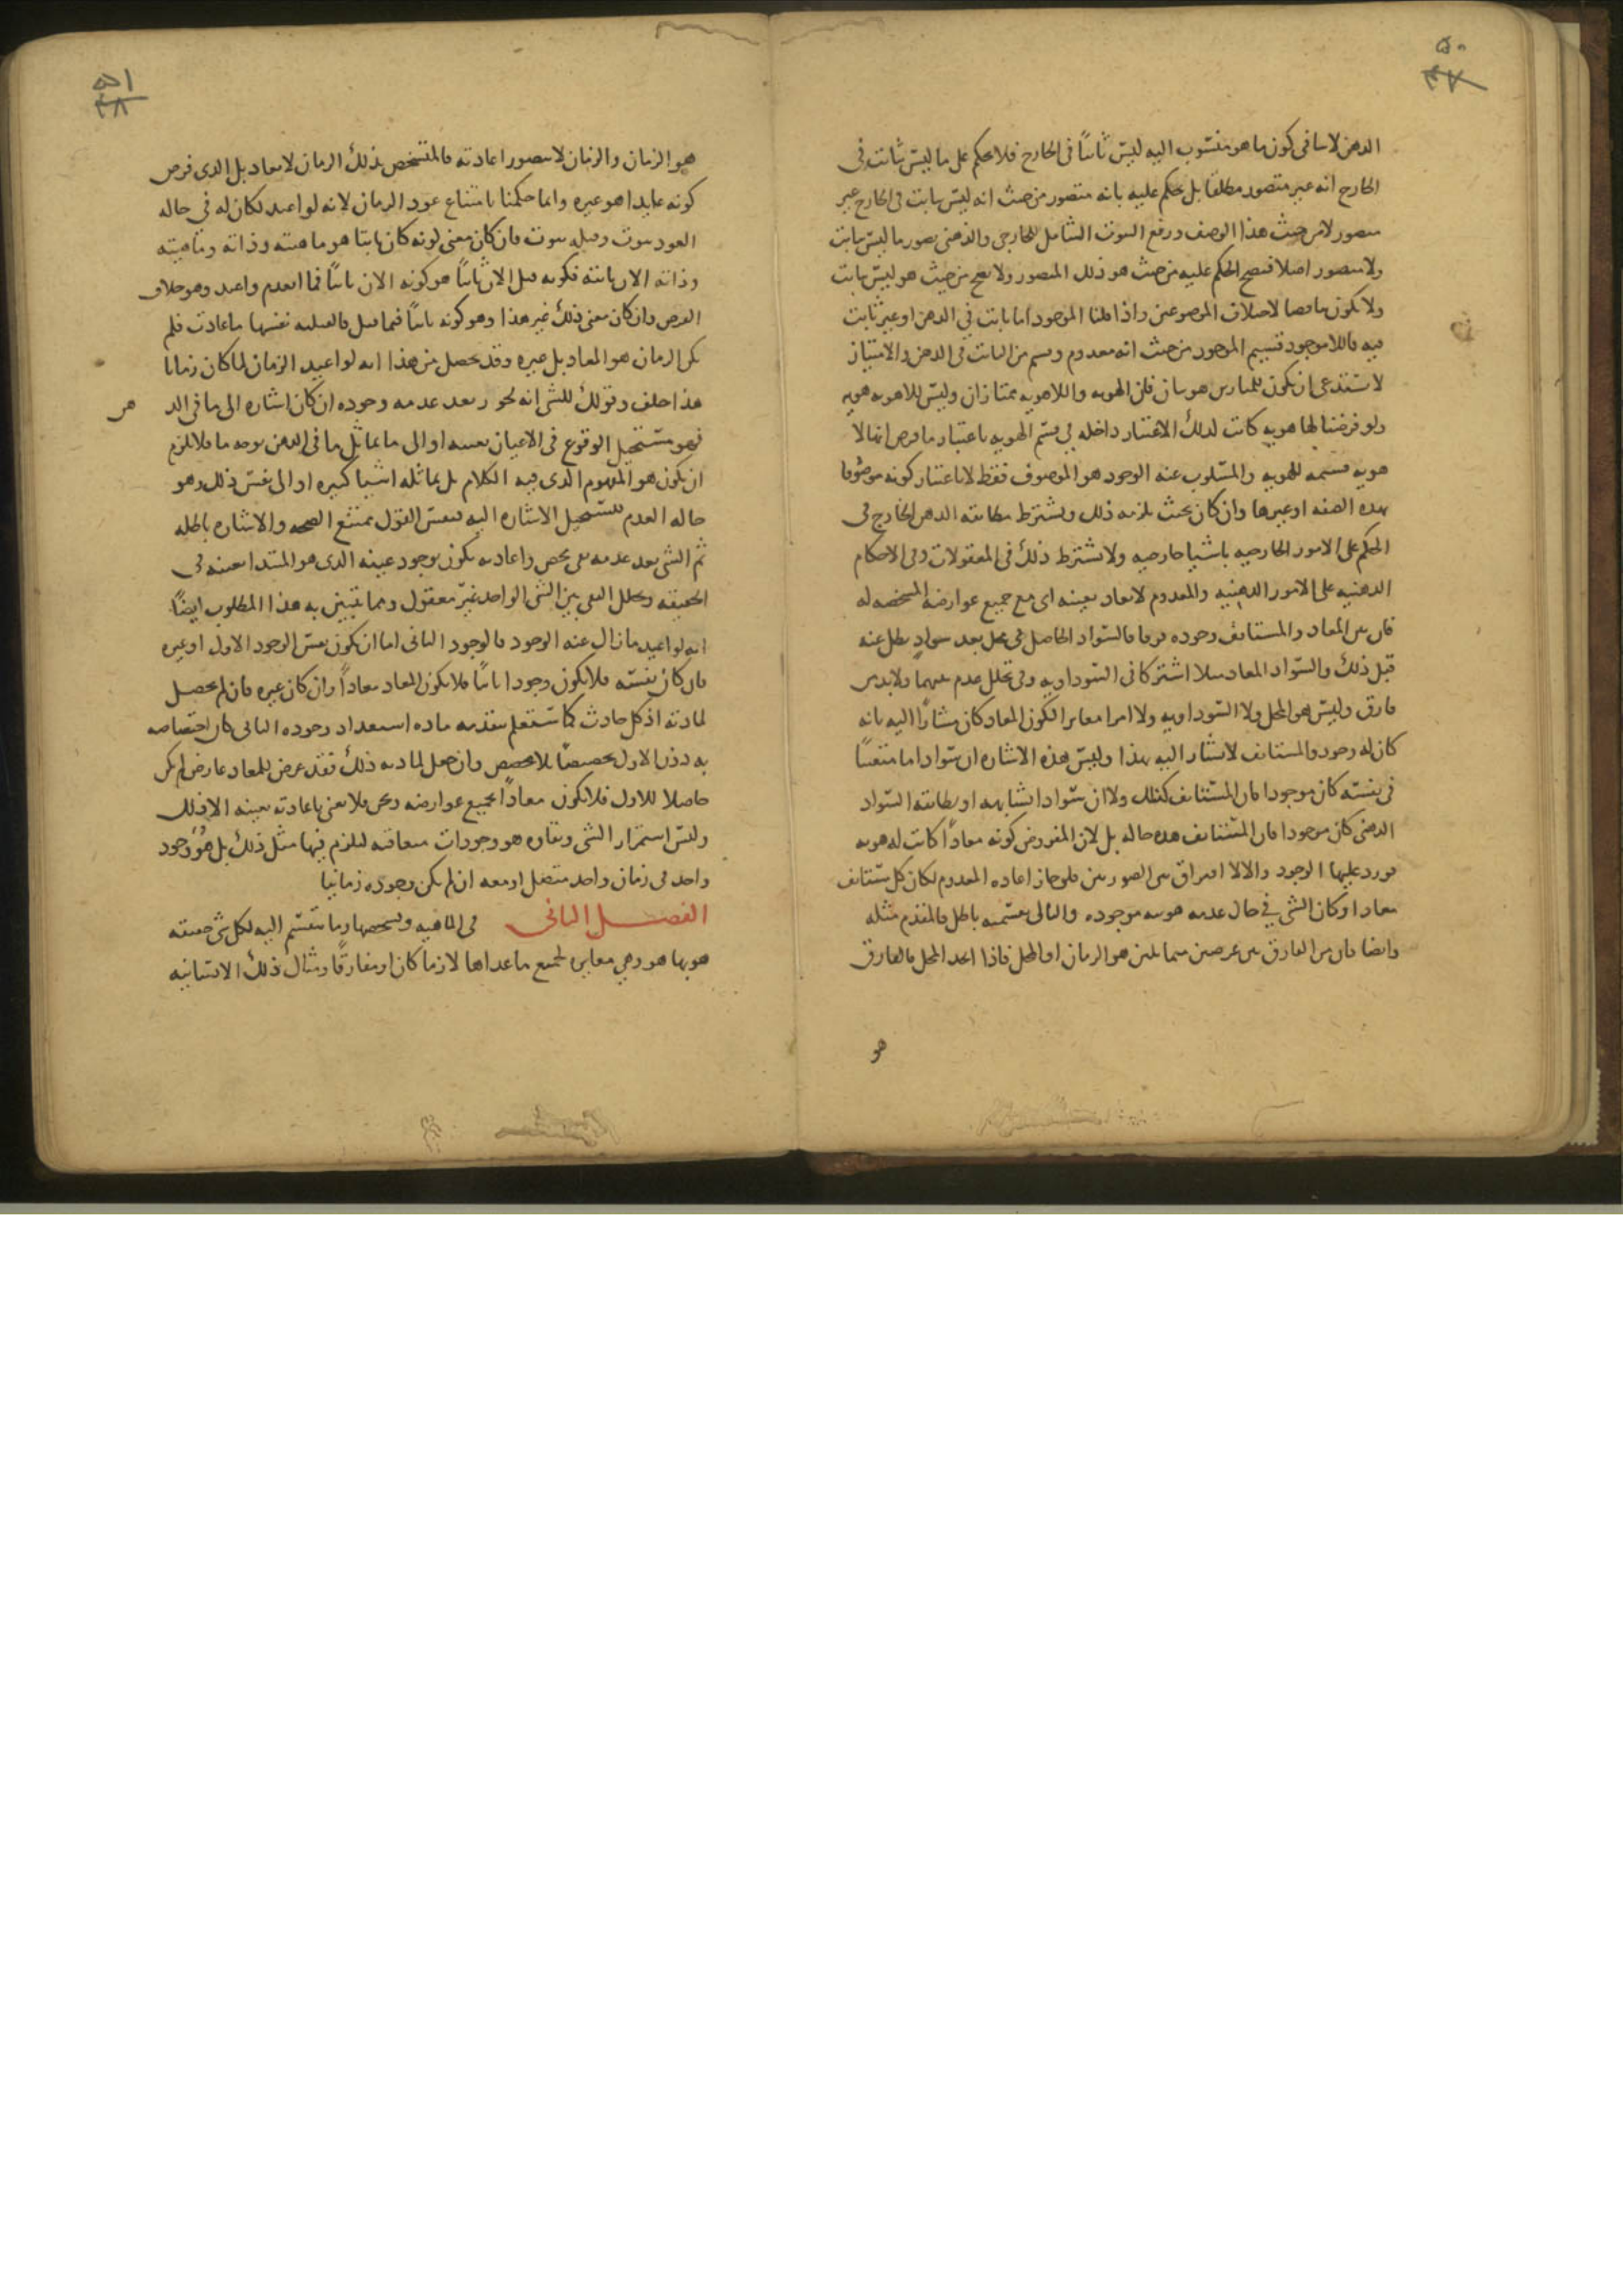 ٥٠
٤٧
الذهن لا ينافي كون ما هو منسوب اليه ليس ثابتاً في الخارج فلا يحكم على ما ليس بثابت في
الخارج انه غير متصور مطلقا بل يحكم عليه بانه متصور من حيث انه ليس بثابت في الخارج غير
متصور لا من حيث هذا الوصف ورفع الثبوت الشامل للخارجي والذهني يصور ما ليس بثابت
ولا متصور اصلا فيصح الحكم عليه من حيث هو ذلك المتصور ولا يصح من حيث هو ليس بثابت
ولا يكون تناقضا لاختلاف الموضوعين واذا قلنا الموجود اما ثابت في الذهن او غير ثابت
فيه فاللاموجود قسيم الموجود من حيث انه معدوم وقسم من الثابت في الذهن والامتياز
لا يستدعي ان يكون للممتازين هويتان فان الهويه واللاهويه ممتازان وليس للاهويه هويه
ولو فرضنا لها هويه كانت لذلك الاعتبار داخله في قسم الهويه باعتبار ما فرض انها لا
هويه قسيمه للهويه والمسلوب عنه الوجود هو الموصوف فقط لا باعتبار كونه موصوفا
بهذه الصفه او غيرها وان كان بحيث يلزمه ذلك ويشترط مطابقة الذهن الخارج في
الحكم على الامور الخارجيه باشيا خارجيه ولا يشترط ذلك في المعقولات وفي الاحكام
الذهنيه على الامور الذهنيه والمعدوم لا يعاد بعينه اى مع جميع عوارضه المشخصه له
فان بين المعاد والمستانف وجوده فرقا فالسواد الحاصل في محل بعد سواد بطل عنه
قبل ذلك والسواد المعاد مثلا اشتركا في السواديه وفي تخلل عدم بينهما ولا بد من
فارق وليس هو المحل ولا السواديه ولا امرا مغايرا لكون المعاد كان مشاراً اليه بانه
كان له وجود والمستانف لا يشار اليه بهذا وليس هذه الاشاره ان سوادا ما متعيناً
في نفسه كان موجودا فان المستانف كذلك ولا ان سوادا يشابهه او يطابقه السواد
الذهني كان موجودا فان المستانف هذه حاله بل لان المفروض كونه معاداً كانت له هويه
تورد عليها الوجود والا لا افتراق بين الصورتين فلو جاز اعاده المعدوم لكان كل مستانف
معادا او كان الشي في حال عدمه هويته موجوده والتالى بقسميه باطل فالمقدم مثله
وايضا فان من الفارق بين عرضين متماثلين هو الزمان او المحل فاذا اتحد المحل فالفارق
هو
٥١
٤٨
هو الزمان والزمان لا يتصور اعادته فالمتشخص بذلك الزمان لا يعاد بل الذى فرض
كونه عايدا هو غيره وانما حكمنا بامتناع عود الزمان لانه لو اعيد لكان له في حاله
العود ثبوت وقبله ثبوت فان كان معنى كونه كان ثابتا هو ماهيته وذاته وماهيته
وذاته الان ثابتة فكونه قبل الان ثابتاً هو كونه الان ثابتاً فما انعدم واعيد وهو خلاف
الفرض وان كان معنى ذلك غير هذا وهو كونه ثابتاً فيما قبل فالقبليه نفسها ما عادت فلم
يكن الزمان هو المعاد بل غيره وقد يحصل من هذا انه لو اعيد الزمان لما كان زمانا
هذا خلف وقولك للشي انه يجوز بعد عدمه وجوده ان كان اشاره الى ما في الذ
هن
فهو مستحيل الوقوع في الاعيان بعينه او الى ما يماثل ما في الذهن بوجه ما فلا يلزم
ان يكون هو المعدوم الذى فيه الكلام بل يماثله اشيا كثيره او الى نفس ذلك وهو
حاله العدم فتستحيل الاشاره اليه فنفس القول ممتنع الصحه والاشاره باطله
ثم الشي بعد عدمه نفي محض واعادته يكون بوجود عينه الذى هو المبتدا بعينه في
الحقيقه وتخلل النفي بين الشي الواحد غير معقول ومما يتبين به هذا المطلوب ايضاً
انه لو اعيد ما زال عنه الوجود فالوجود الثانى اما ان يكون نفس الوجود الاول او غيره
فان كان نفسه فلا يكون وجودا ثانياً فلا يكون المعاد معاداً وان كان غيره فان لم يحصل
لمادته اذ كل حادث كما ستعلم بتقدمه ماده استعداد وجوده الثاني كان اختصاصه
به دون الاول تخصيصا بلا مخصص وان حصل لمادته ذلك فقد عرض للمعاد عارض لم يكن
حاصلا للاول فلا يكون معاداً بجميع عوارضه ونحن فلا نعني باعادته بعينه الا ذلك
وليس استمرار الشي وبقاؤه هو وجودات متعاقبه ليلزم فيها مثل ذلك بل هو وجود
واحد في زمان واحد متصل او معه ان لم يكن وجوده زمانيا
الفصل الثانى في الماهيه وتشخصها وما تنقسم اليه لكل شي حقيقه
هو بها هو وهي مغايره لجميع ما عداها لازما كان او مفارقًا ومثال ذلك الانسانيه